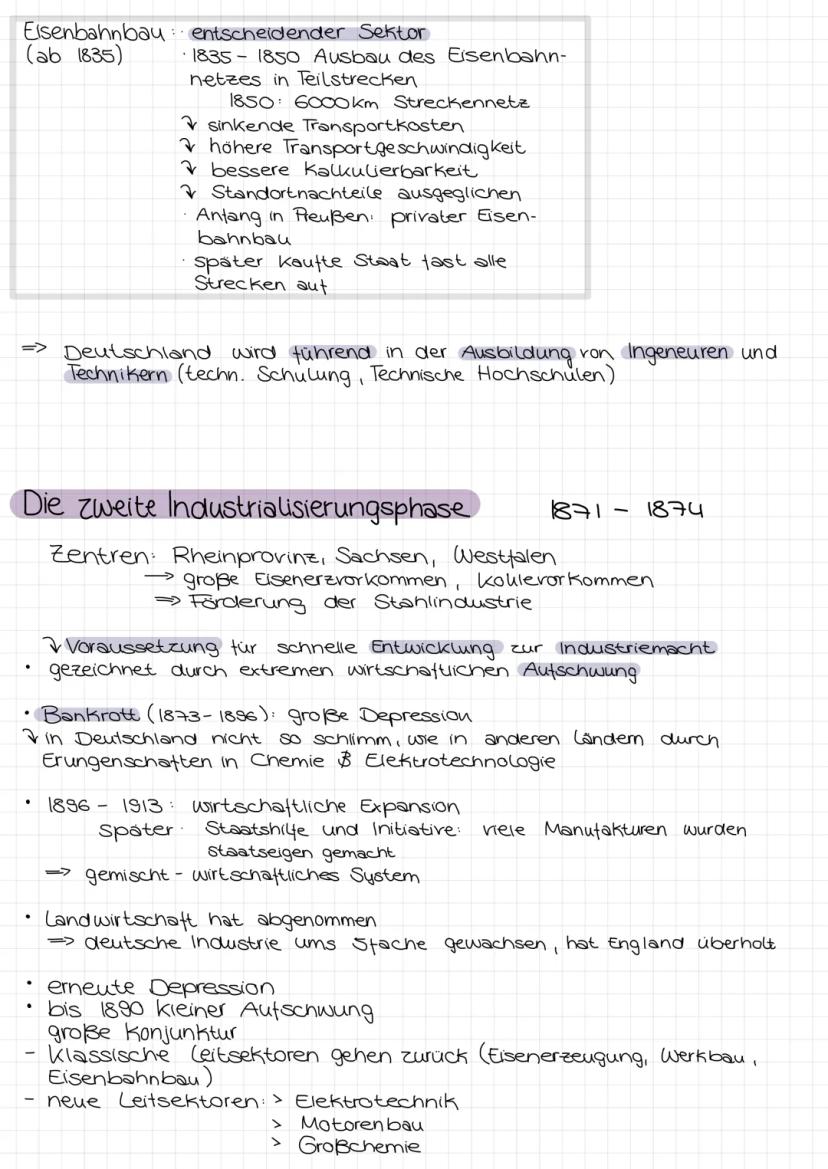 Eisenbahnbau: · entscheidender Sektor
(ab 1835) · 1835 - 1850 Ausbau des Eisenbahn-
netzes in Teilstrecken
1850: 6000km Streckennetz
↴ sinkende Transportkosten
↴ höhere Transportgeschwindigkeit
↴ bessere Kalkulierbarkeit
↴ Standortnachteile ausgeglichen
· Anfang in Preußen: privater Eisen-
bahnbau
· später kaufte Staat fast alle
Strecken auf
=> Deutschland wird führend in der Ausbildung von Ingeneuren und
Technikern (techn. Schulung, Technische Hochschulen)
Die zweite Industrialisierungsphase 1871 - 1874
Zentren: Rheinprovinz, Sachsen, Westfalen
→ große Eisenerzvorkommen, Kohlevorkommen
=> Förderung der Stahlindustrie
↴ Voraussetzung für schnelle Entwicklung zur Industriemacht
• gezeichnet durch extremen wirtschaftlichen Aufschwung
• Bankrott (1873-1896): große Depression
↴ in Deutschland nicht so schlimm, wie in anderen Ländern durch
Erungenschaften in Chemie & Elektrotechnologie
• 1896 - 1913: wirtschaftliche Expansion
später: Staatshilfe und Initiative: viele Manufakturen wurden
staatseigen gemacht
=> gemischt-wirtschaftliches System
• Landwirtschaft hat abgenommen
=> deutsche Industrie ums 5fache gewachsen, hat England überholt
• erneute Depression
• bis 1890 kleiner Aufschwung
große Konjunktur
- klassische Leitsektoren gehen zurück (Eisenerzeugung, Werkbau,
Eisenbahnbau)
- neue Leitsektoren: > Elektrotechnik
> Motorenbau
> Großchemie